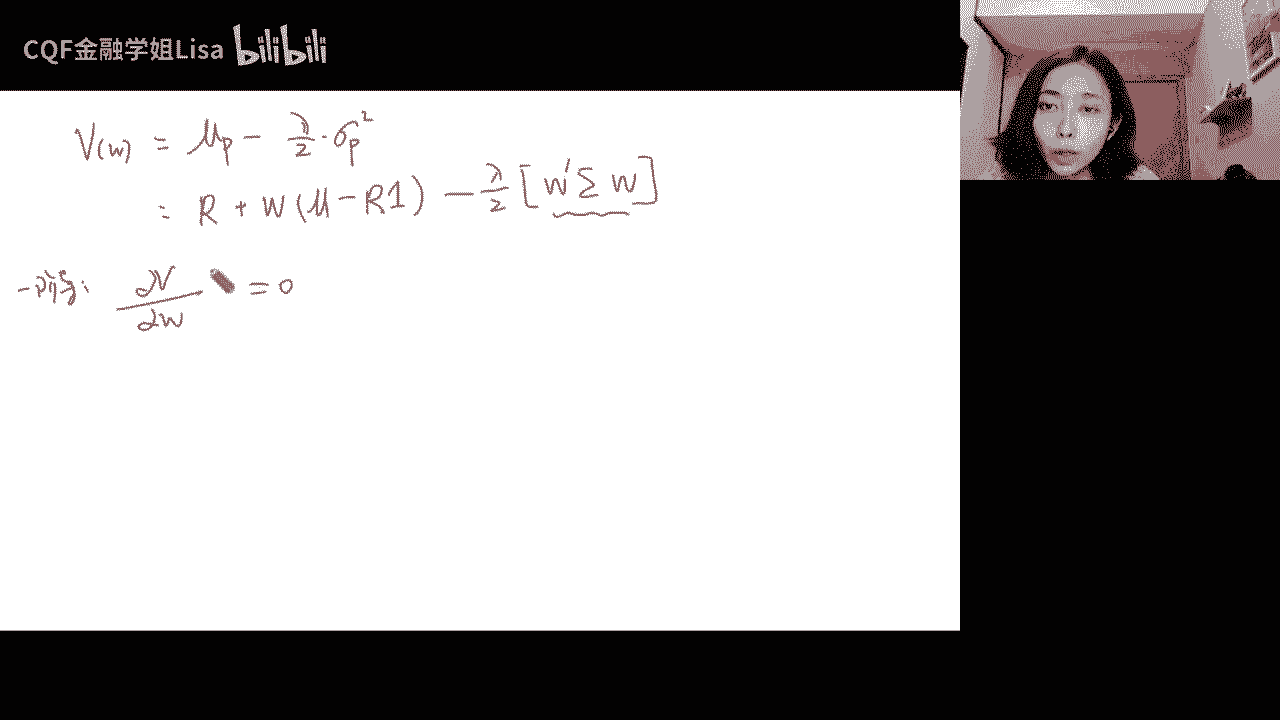 CQF金融学姐Lisa bilibili
V(w) = μp - λ/2 · σp²
= R + W(μ - R1) - λ/2 [w'Σw]
一阶导: ∂V/∂w = 0